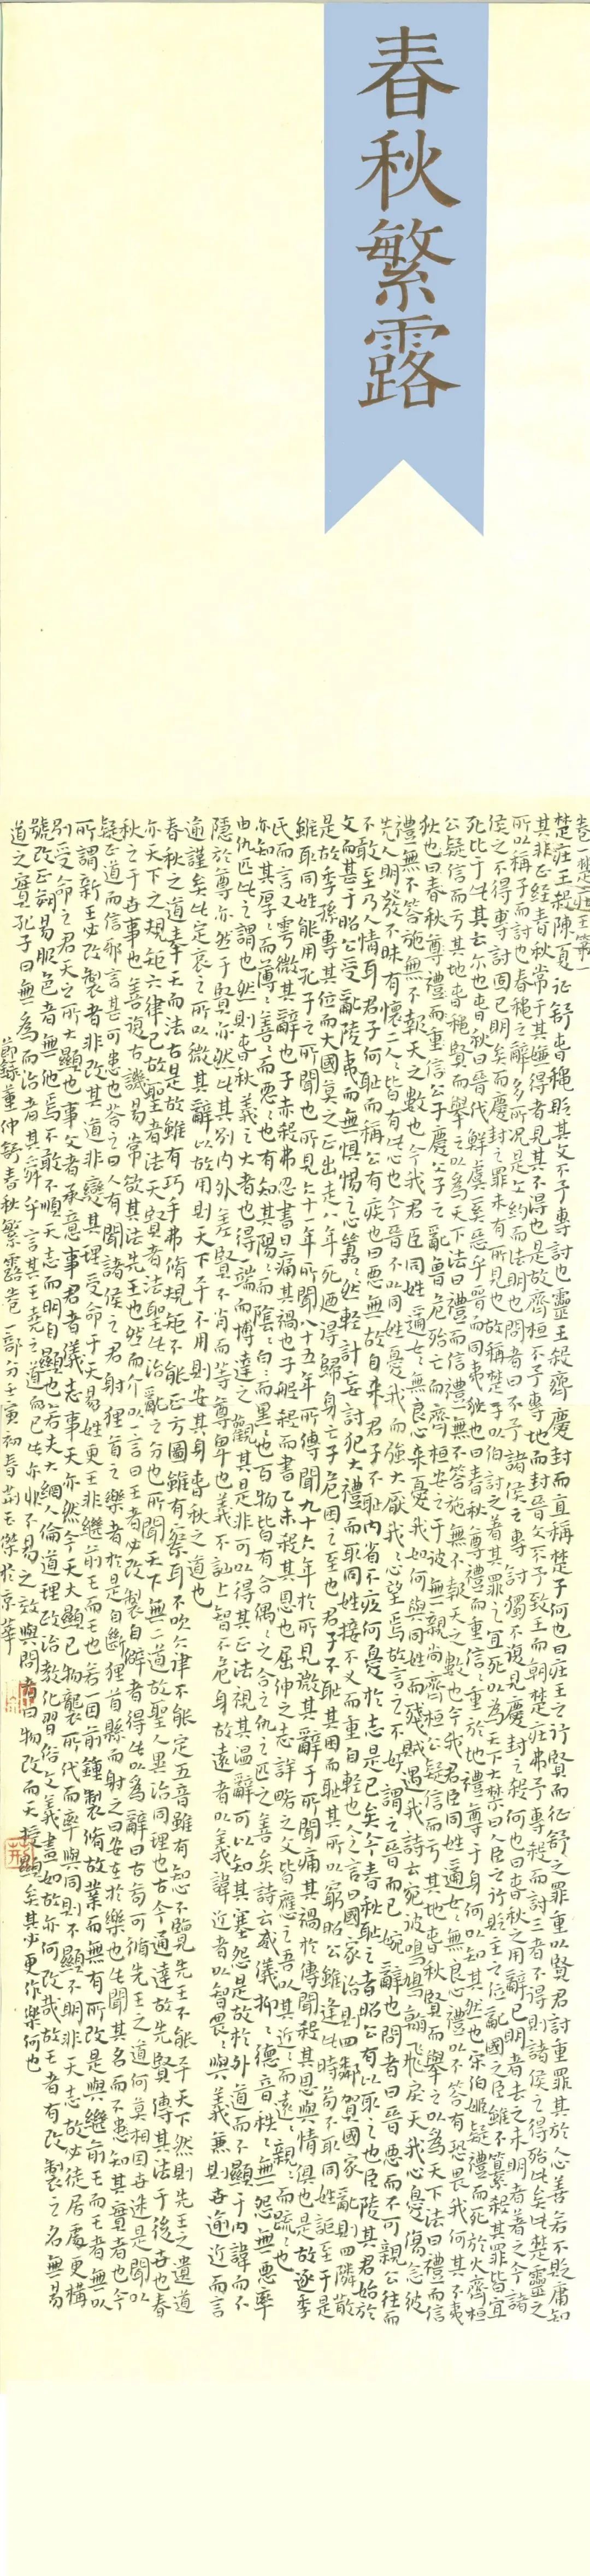 春秋繁露
卷一楚莊王第一
楚莊王殺陳夏征舒春穐貶其文不予專討也靈王殺齊慶封而直稱楚子何也曰莊王之行賢而征舒之罪重以賢君討重罪其於人心善若不貶庸知
其非正經春秋常于其嫌得者見其不得也是故齊桓不予專地而封晉文不予致王而朝楚莊弗予專殺而討三者不得則諸侯之得殆此矣此楚靈之
所以稱子而討也春穐之辭多所況是文約而法明也問者曰不予諸侯之專討獨不復見慶封之殺何也曰春秋之用辭已明者去之未明者著之今諸
侯之不得專討固已明矣而慶封之罪未有所見也故稱楚子以伯討之著其罪之宜死以為天下大禁曰人臣之行貶主之位亂國之臣雖不篡殺其罪皆宜
死比于此其云尔也春秋曰晉伐鮮虞奚惡乎晉而同夷狄也曰春秋尊禮而重信信重於地禮尊于身何以知其然也宋伯姬疑禮而死於火齊桓
公疑信而亏其地春穐賢而舉之以為天下法曰禮而信禮無不答施無不報天之數也今我君臣同姓適女女無良心禮以不答有恐畏我何其不夷
狄也曰春秋尊禮而重信公子慶父之亂魯危殆亡而齊桓安之于彼無親尚齊桓公疑信而亏其地春秋賢而舉之以為天下法曰禮而信
禮無不答施無不報天之數也今我君臣同姓適女女無良心來憂我如何與同姓而殘賊遇我詩云宛彼鳴鳩翰飛戾天我心憂傷念彼
先人明發不昧有懷二人人皆有此心也今晉不以同姓憂我而強大厭我我心望焉故言之不好謂之晉而已婉辭也問者曰晉惡而不可親公往而
不敢至乃人情耳君子何耻而稱公有疾也曰惡無故自來君子不耻內省不疚何憂於志是已矣今春秋耻之者昭公有以取之也臣陵其君始於
文而甚于昭公受亂陵夷而無惧惕之心囂囂然輕計妄討犯大禮而取同姓接不义而重自輕也人之言曰國家治則四鄰賀國家亂則四隣散
是故季孫專其位而大國莫之正出走八年死迺得歸身亡子危困之至也君子不耻其困而耻其所以窮昭公雖逢此時苟不取同姓詎至于是
雖取同姓能用孔子之所聞也所見六十一年所聞八十五年所傳聞九十六年於所見微其辭于所聞痛其禍於傳聞殺其恩與情俱也是故逐季
氏而言又雩微其辭也子赤殺弗忍書日痛其禍也子般殺而書乙未殺其恩也屈伸之志詳略之文皆應之吾以其近近而遠遠親親而疏疏也
亦知其厚厚而薄薄善善而惡惡也有知其陽陽而陰陰白白而黑黑也百物皆有合偶偶之合之仇之匹之善矣詩云威儀抑抑德音秩秩無怨無惡率
由仇匹此之謂也然則春秋義之大者也得一端而博達之觀其是非可以得其正法視其温辭可以知其塞怨是故於外道而不顯于內諱而不
隱於尊亦然于賢亦然此其別內外差賢不肖而等尊卑也義不訕上智不危身故遠者以義諱近者以智畏畏與義兼則世逾近而言
逾謹矣此定哀之所以微其辭以故用則天下平不用則安其身春秋之道也
春秋之道奉天而法古是故雖有巧手弗脩規矩不能正方圓雖有察耳不吹六律不能定五音雖有知心不覽先王不能平天下然則先王之遺道
亦天下之規矩六律已故聖者法天賢者法聖此治亂之分也所聞天下無二道故聖人異治同理也古今通達故先賢傳其法于後世也春
秋之于世事也善復古譏易常欲其法先王也然而介以一言曰王者必改制自僻者得此以為辭曰古苟可循先王之道何莫相因世迷是聞以
疑正道而信邪言甚可患也答之曰人有聞諸侯之君射狸首之樂者於是自斷狸首縣而射之曰安在於樂也此聞其名而不患知其實者也今
所謂新王必改製者非改其道非變其理受命于天易姓更王非繼前王而王也若一因前鍾製脩故業而無有所改是與繼前王而王者無以
別受命之君天之所大顯也事父者承意事君者儀志事天亦然今天大顯已物襲所代而率與同則不顯不明非天志故必徒居處更稱
號改正朔易服色者無他焉不敢不順天志而明自顯也若夫大綱人倫道理政治教化習俗文義盡如故亦何改哉故王者有改製之名無易
道之實孔子曰無為而治者其舜乎言其王堯之道而已此亦非不易之效與問者曰物改而天授顯矣其必更作樂何也
節錄董仲舒春秋繁露卷一部分壬寅初春荊玉傑於京華